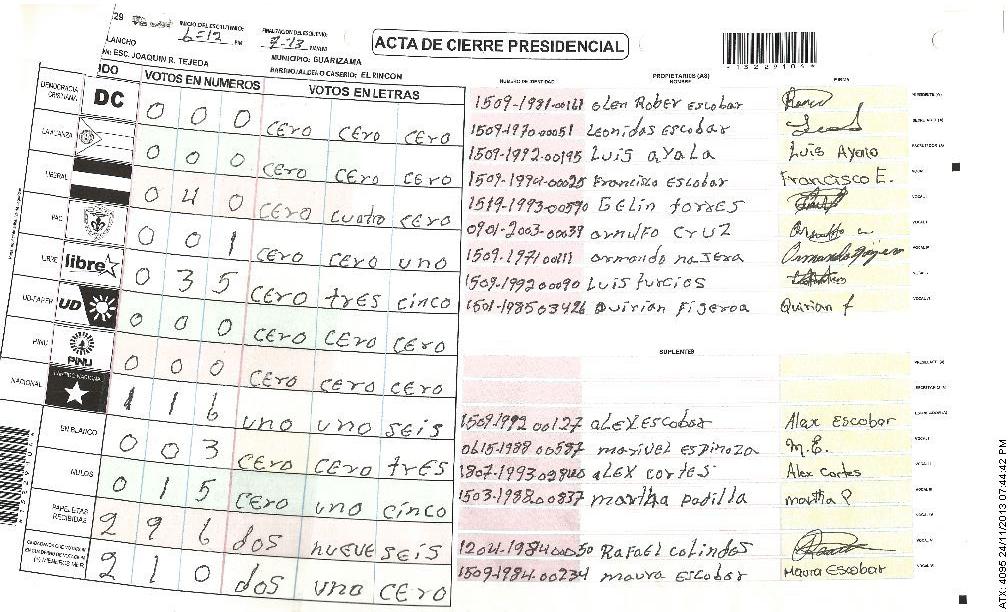 29
INICIO DEL ESCRUTINIO:
6=12 PM
7-13
ACTA DE CIERRE PRESIDENCIAL
1322910
LANCHO
MUNICIPIO: GUARIZAMA
ESC. JOAQUIN R. TEJEDA
CASERIO: EL RINCON
IDO VOTOS EN NUMEROS VOTOS EN LETRAS
NUMERO DE IDENTIDAD PROPIETARIOS (AS) NOMBRE FIRMA
DEMOCRACIA CRISTIANA DC 0 0 0 CERO CERO CERO
LA ALIANZA 0 0 0 CERO CERO CERO
LIBERAL 0 4 0 CERO cuatro CERO
PAC 0 0 1 CERO CERO uno
LIBRE libre 0 3 5 CERO tres cinco
UD-FAPER UD 0 0 0 CERO CERO CERO
PINU PINU 0 0 0 CERO CERO CERO
NACIONAL PARTIDO NACIONAL 1 1 6 uno uno seis
EN BLANCO 0 0 3 CERO CERO tres
NULOS 0 1 5 CERO uno cinco
PAPELETAS RECIBIDAS 2 9 6 dos nueve seis
2 1 0 dos uno CERO
olen Rober escobar
1509-1970-00051 Leonidas Escobar
1509-1992-00195 Luis ayala Luis Ayala
Francisco Escobar Francisco E.
torres
0901-2003-00039 arnulfo CRUZ
armando najera
1509-1992 00090 Luis turcios
Quirian Figeroa Quirian f
SUPLENTES
1509-1992 00127 alex Escobar Alex Escobar
0615-1988 00587 marivel espinoza M.E.
aLEX cortes Alex Cortes
martha padilla martha P
1204-1984 00050 Rafael colindos
1509-1984-00234 maura Escobar Maura Escobar
ATX: 4095 24/11/2013 07:44:42 PM